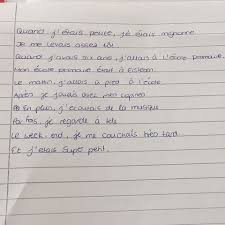 Quand j'étais petite, je étais mignonne
Je me levais assez tôt.
Quand j'avais six ans, j'allais à l'école primaire.
Mon école primaire était à
Le matin, j'allais a pied à l'école
Après je jouais avec mes copines
En plus, j'écoutais de la musique
Par fois, je regarde à télé
Le week-end, je me couchais très tard.
Et j'étais super petit.